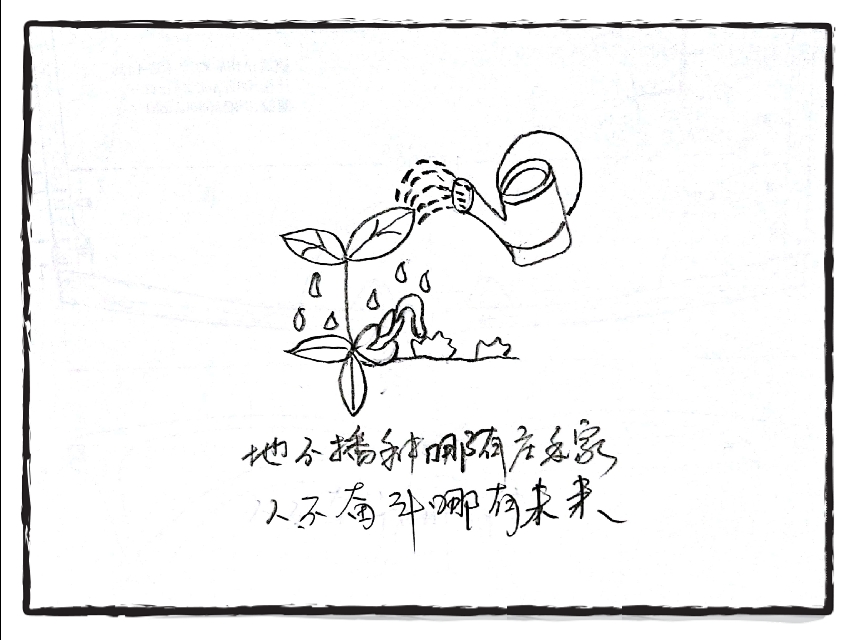 地不播种哪有庄禾家
人不奋斗哪有未来